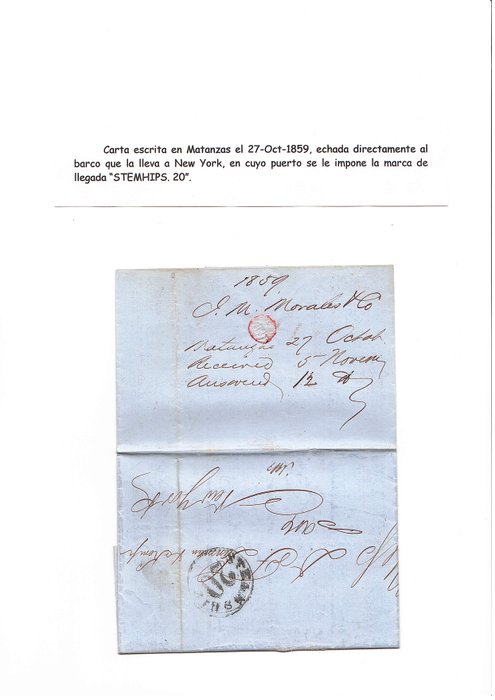 Carta escrita en Matanzas el 27-Oct-1859, echada directamente al
barco que la lleva a New York, en cuyo puerto se le impone la marca de
llegada “STEMHIPS. 20”.
1859
J. M. Morales & Co
Matanzas 27 Octob
Received 5 Novem
Answered 12 D
New York
20